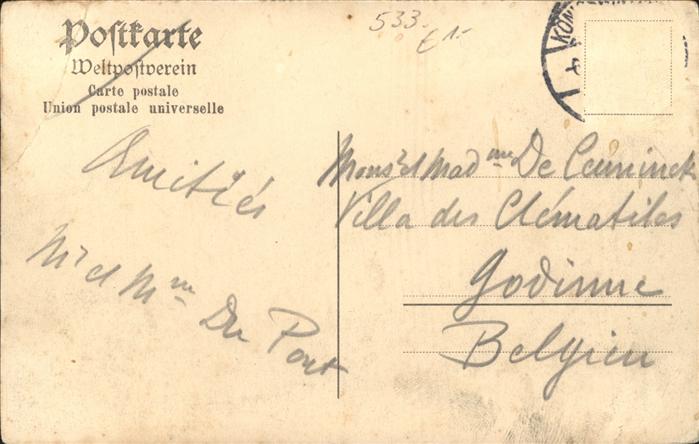 Postkarte
Weltpostverein
Carte postale
Union postale universelle
533.
€1.-
KÖNI
Amitiés
Mr et Mme Du Pont
Monsr et Madme De Ceuninck
Villa des Clématites
Godinne
Belgien